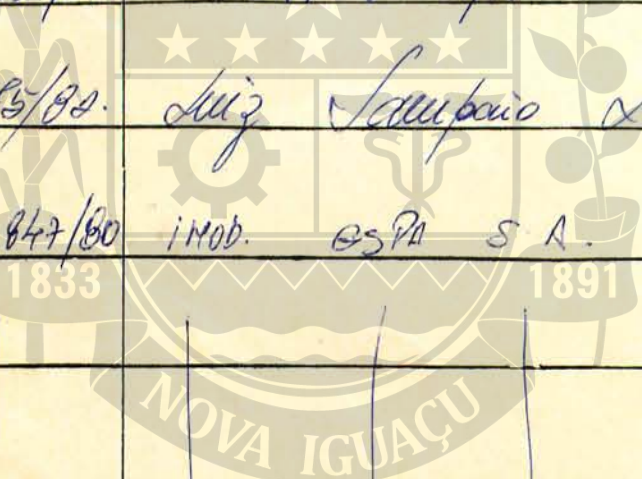 5/82. Luiz Sampaio
847/80 IMOB. ESPA S A.
1833 1891
NOVA IGUAÇU